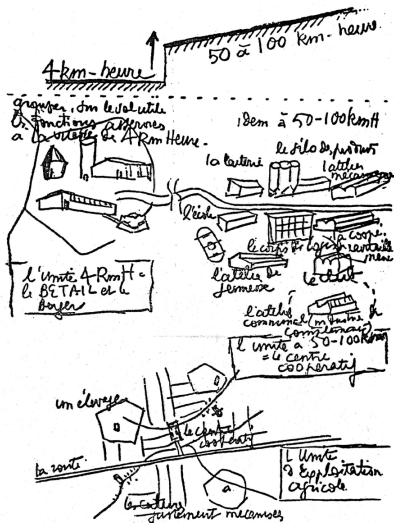 4 km-heure
50 à 100 km-heure.
grouper, sur le sol utile
les fonctions asservies
à la vitesse de 4 Km Heure -
idem à 50-100 km H
la laiterie
le silo des produits
l'atelier
mécanique
l'école
la coopé.
le corps de logis
l'atelier de
jeunesse
le club
l'atelier
communal
l'unité 4 Km H =
le BETAIL et le
Berger
l'unité à 50-100 km H
= le centre
coopératif
un élevage
le centre
coopératif
la route
a
a
les cultures
purement mécanisées
L'Unité
D'Exploitation
agricole